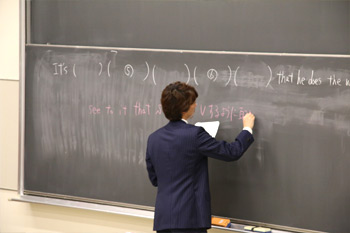 It's (    ) ( ⑤ ) (    ) ( ⑥ ) (    ) that he does the
see to it that Vするように